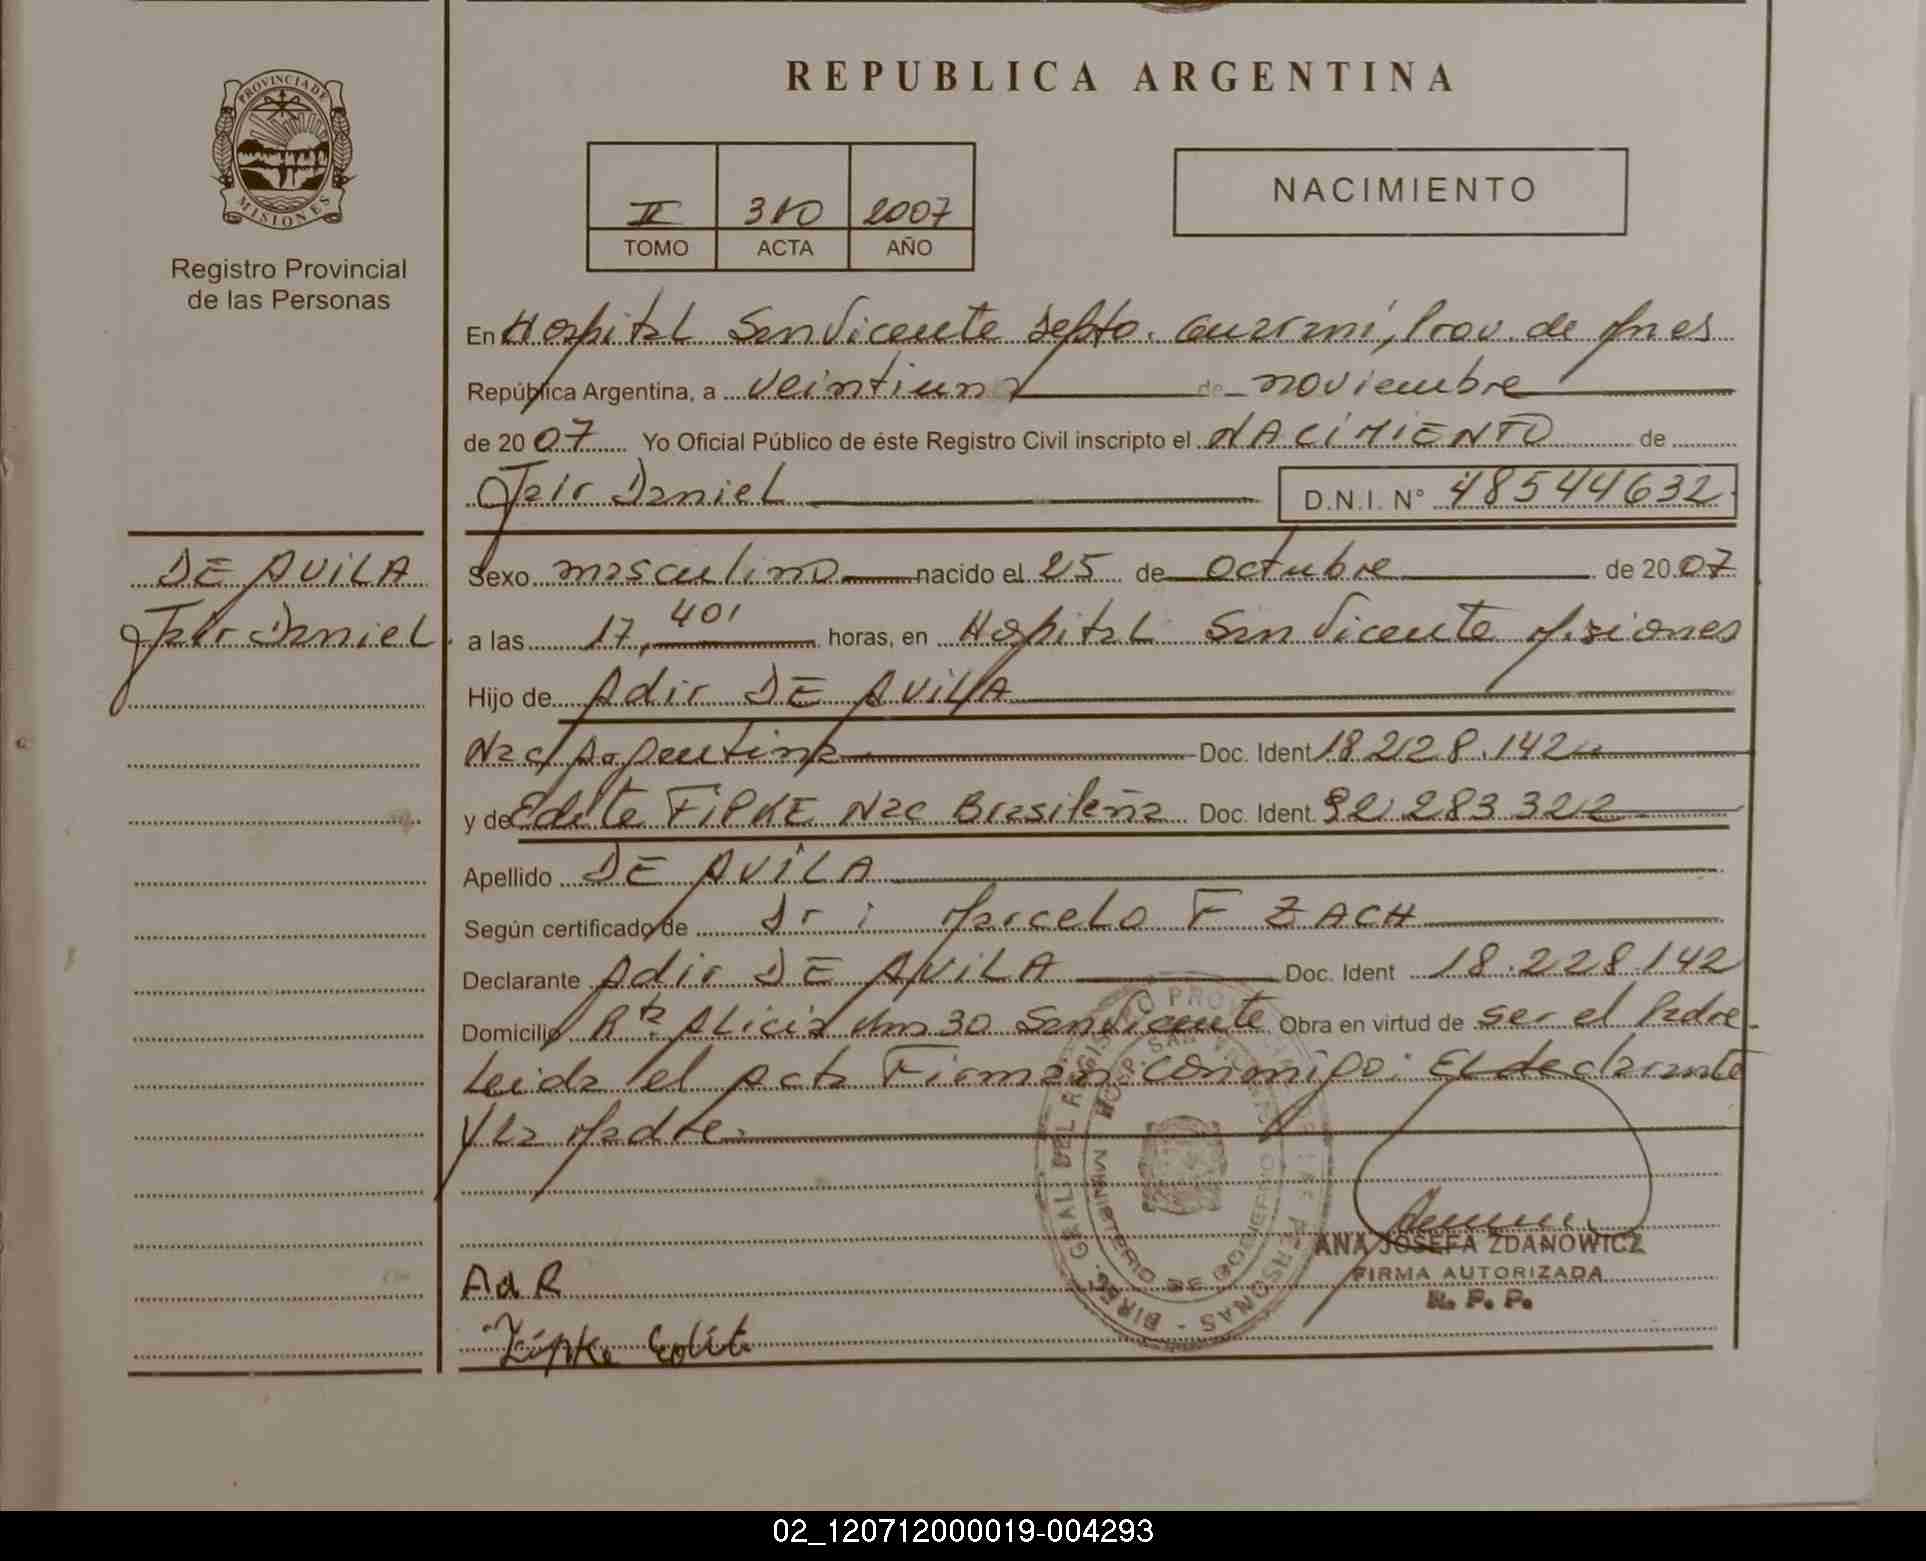 REPUBLICA ARGENTINA
PROVINCIA DE
MISIONES
Registro Provincial
de las Personas
II 310 2007
TOMO ACTA AÑO
NACIMIENTO
En Hospital San Vicente Depto. Guaraní, Prov. de Mnes
República Argentina, a veintiuno de noviembre
de 2007 Yo Oficial Público de éste Registro Civil inscripto el NACIMIENTO de
Jair Daniel D.N.I. N° 48544632
DE AVILA
Jair Daniel
Sexo masculino nacido el 25 de octubre de 2007
a las 17,40' horas, en Hospital San Vicente Misiones
Hijo de Adir DE AVILA
Nac Argentina Doc. Ident 18.228.142
y de Edite FIPKE Nac Brasileña Doc. Ident. 92.283.322
Apellido DE AVILA
Según certificado de Dr: Marcelo F ZACH
Declarante Adir DE AVILA Doc. Ident 18.228.142
Domicilio Rta Alicia Km 30 San Vicente Obra en virtud de ser el Padre
Leida el acta Firman conmigo: El declarante
y la Madre
DIREC. GRAL. DEL REGISTRO PROVINCIAL DE LAS PERSONAS -
HOSP. SAN VICENTE
MINISTERIO DE GOBIERNO
ANA JOSEFA ZDANOWICZ
FIRMA AUTORIZADA
R. P. P.
AdR
Fipke Edit
02_120712000019-004293